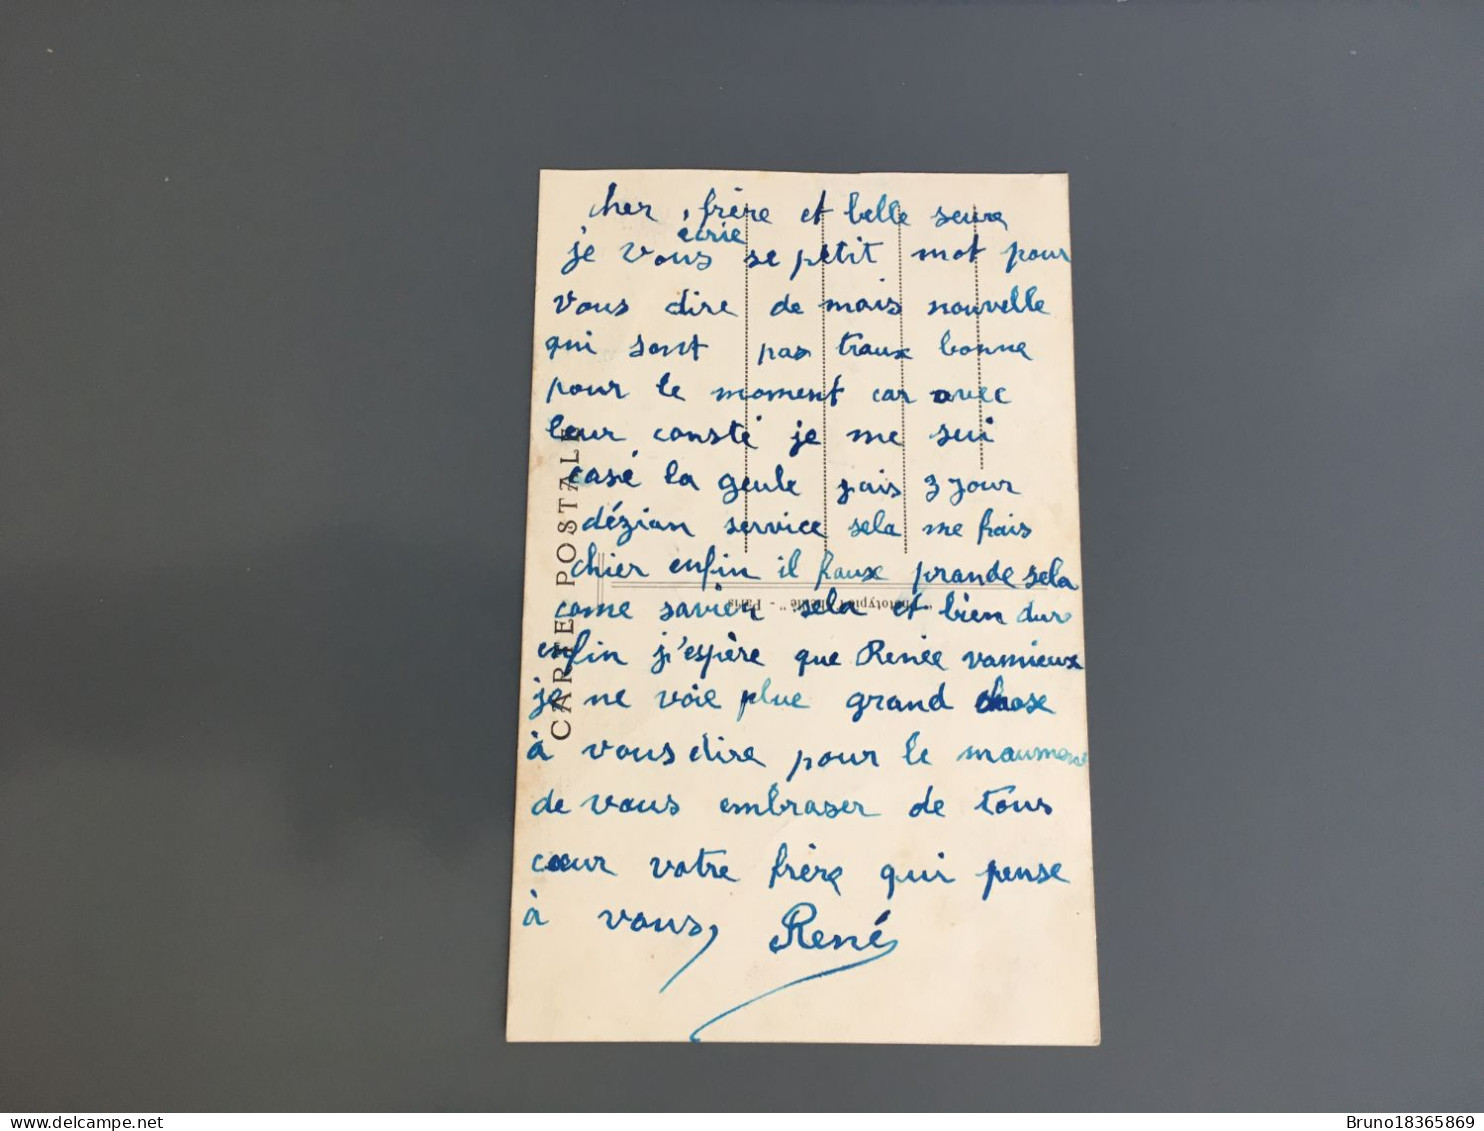 cher frère et belle seure
écrie
je vous se petit mot pour
vous dire de mais nouvelle
qui sont pas traux bonne
pour le moment car avec
leur consté je me sui
casé la geule jais 3 jour
dézian service sela me frais
chier enfin il faux prande sela
come savien sela et bien dur
enfin j'espère que Renée vamieux
je ne voie plue grand chose
à vous dire pour le maument
de vous embraser de tous
cœur votre frère qui pense
à vous, René
CARTE POSTALE
- Paris
delcampe.net
Bruno18365869